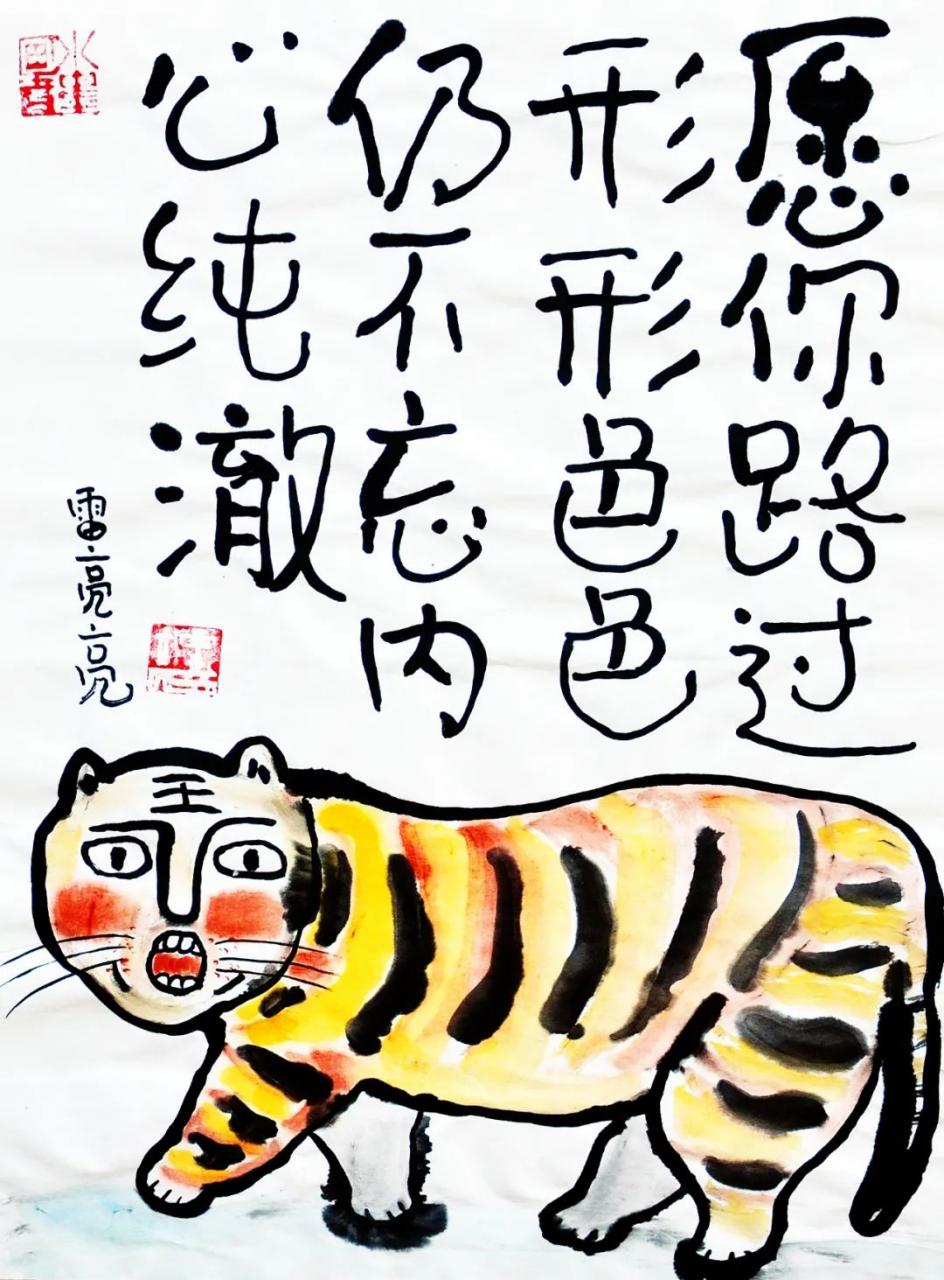 愿你路过
形形色色
仍不忘内
心纯澈
雷亮亮
王